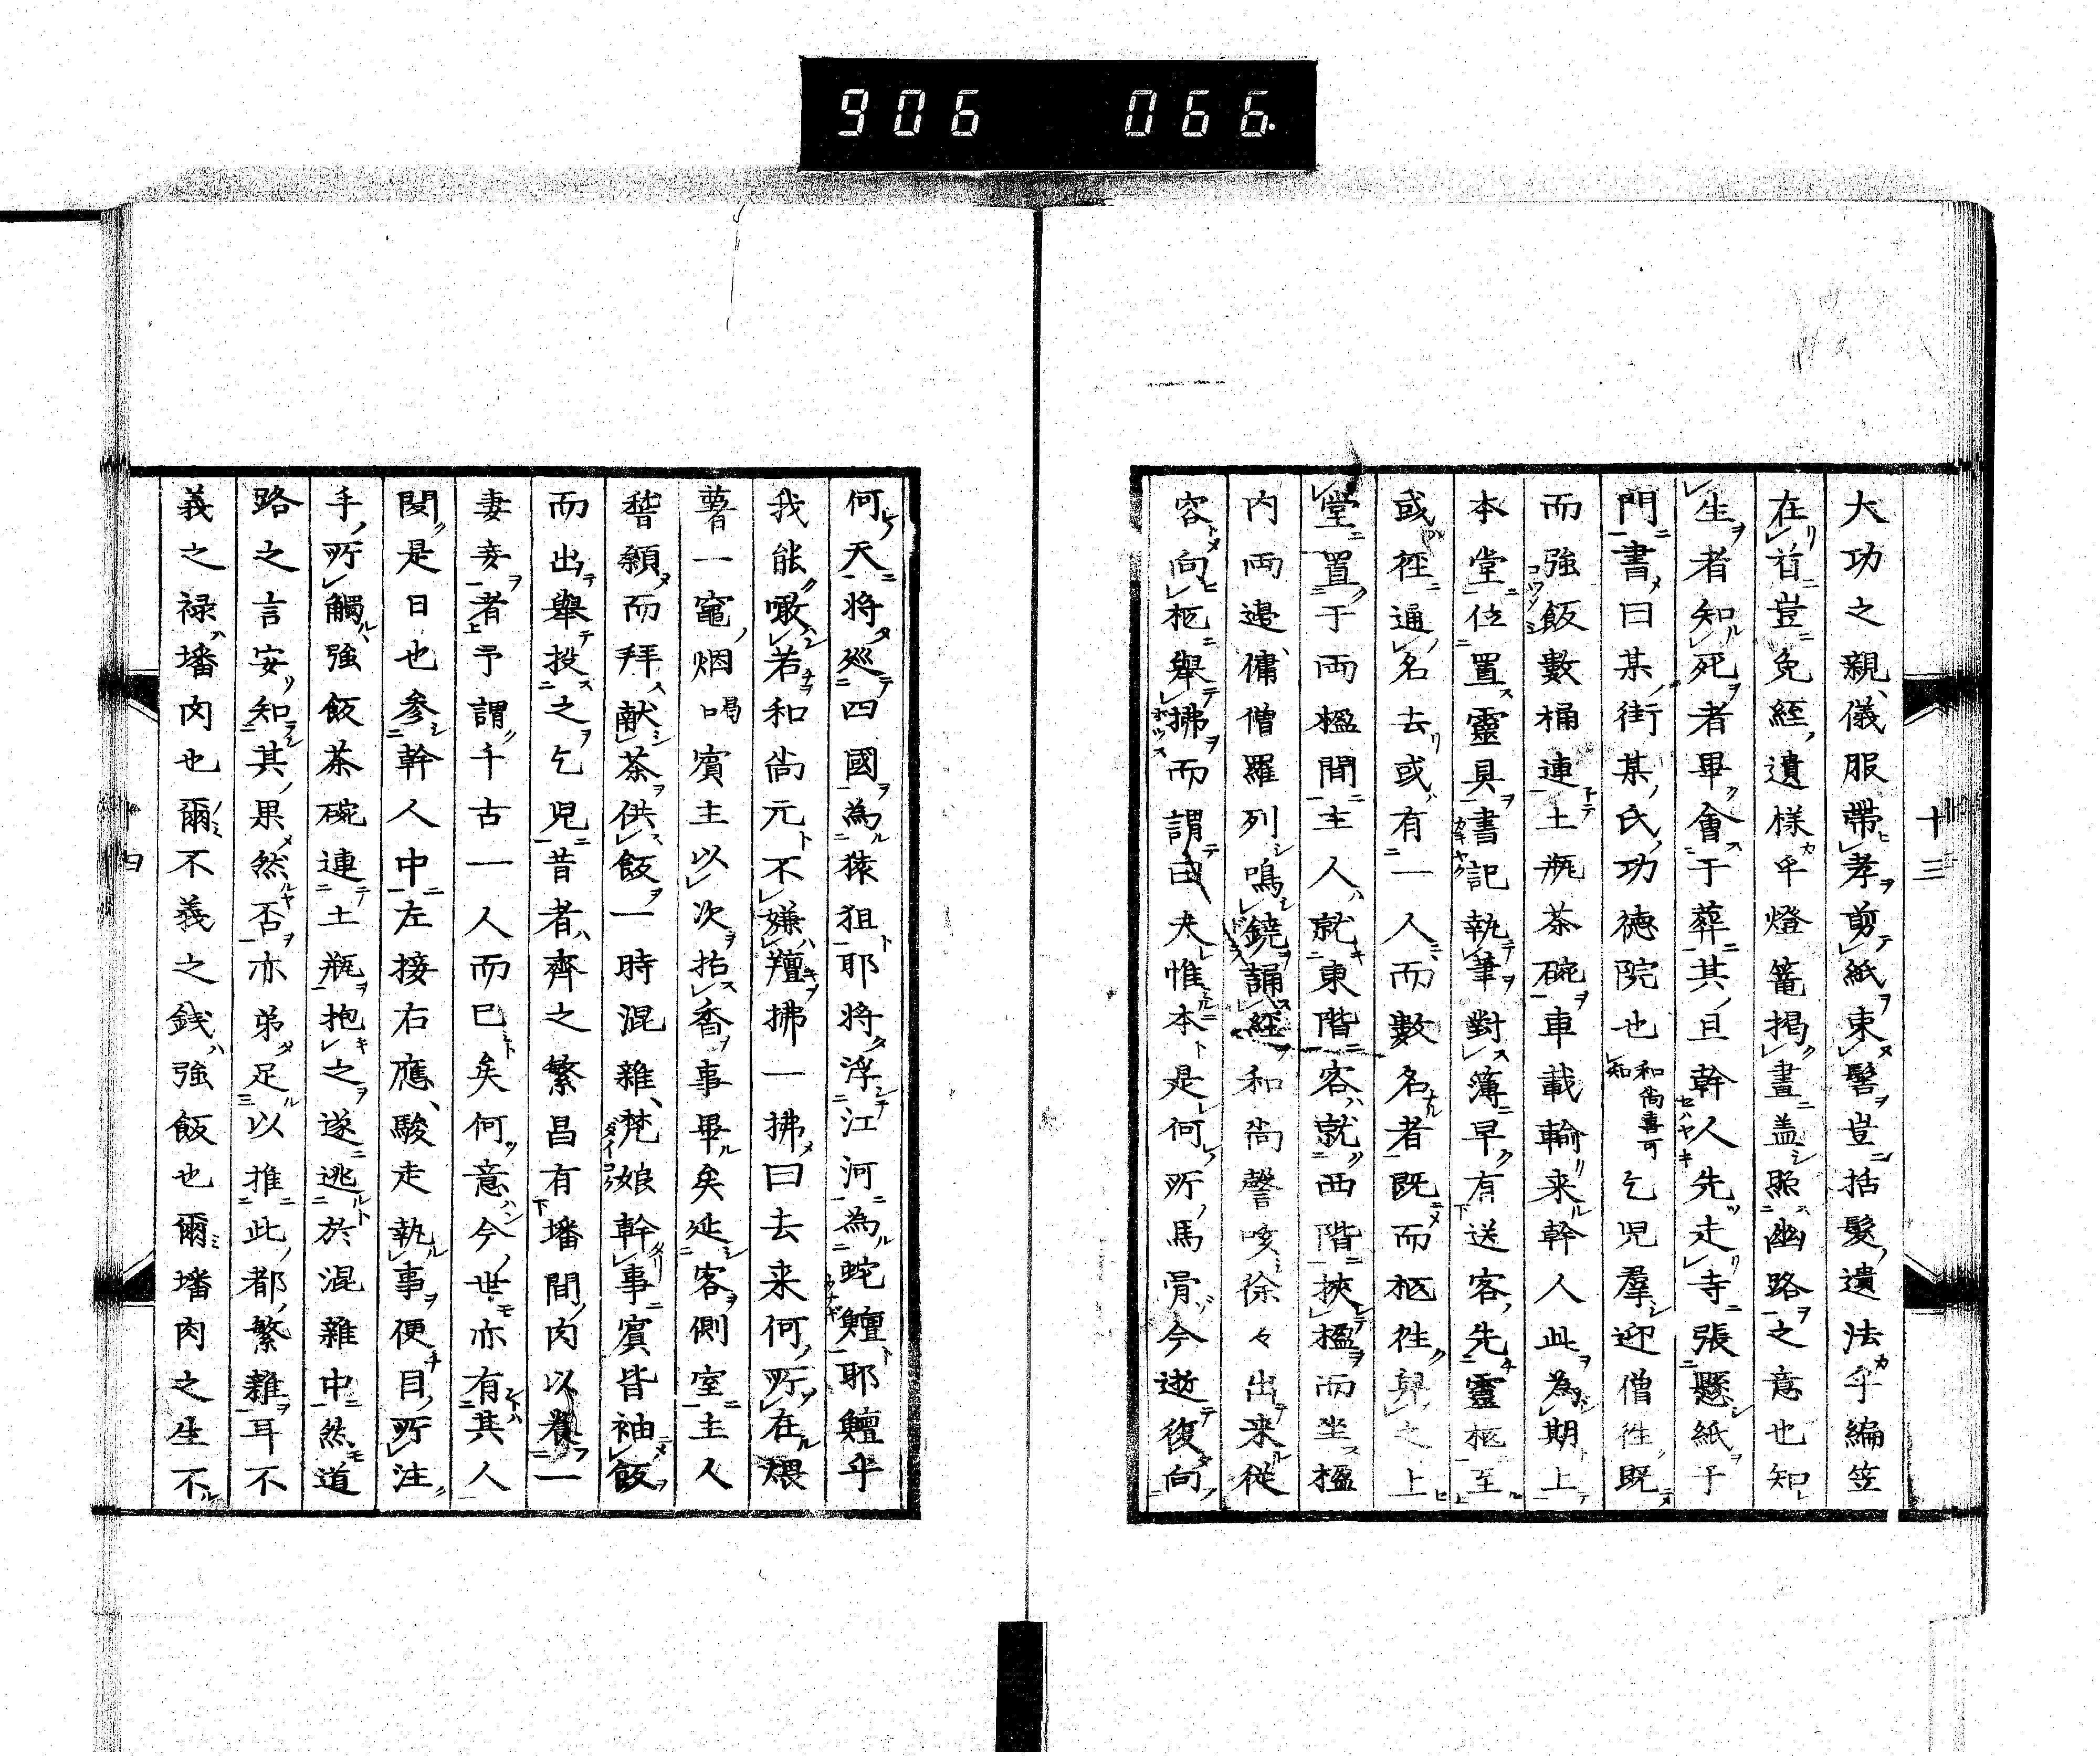 906 066.
十三
大功之親儀服帶孝剪紙束髻豈括髮遺法乎編笠
在首豈免絰遺樣乎燈篭揭晝盖照幽路之意也知
生者知死者畢會于葬其旦幹人先走寺張懸紙于
門書曰某街某氏功德院也和尚喜可知乞児羣迎僧徃既
而強飯數桶連土瓶茶碗車載輸来幹人此為期上
本堂位置靈具書記執筆對簿早有送客先靈柩至
或徃通名去或有一人而數名者既而柩徃舁之上
堂置于兩楹間主人就東階客就西階挾楹而坐楹
内兩邉傭僧羅列鳴鐃誦経和尚謦咳徐々出来従
容向柩舉拂而謂曰夫惟本是何所馬骨今逝復向
何天將廵四國為猿狙耶將浮江河為蛇鱣耶鱣乎
我能噉若和尚元不嫌羶拂一拂曰去来何所在煨
薯一竃烟喝賓主以次拈香事畢矣延客側室主人
稽顙而拜献茶供飯一時混雜梵娘幹事賓皆袖飯
而出舉投之乞児昔者齊之繁昌有墦間肉以養一
妻妾者予謂千古一人而已矣何意今世亦有其人
閔是日也参幹人中左接右應駿走執事便目所注
手所觸強飯茶碗連土瓶抱之遂逃於混雜中然道
路之言安知其果然否亦弟足以推此都繁雜耳不
義之禄墦肉也爾不義之銭強飯也爾墦肉之生不